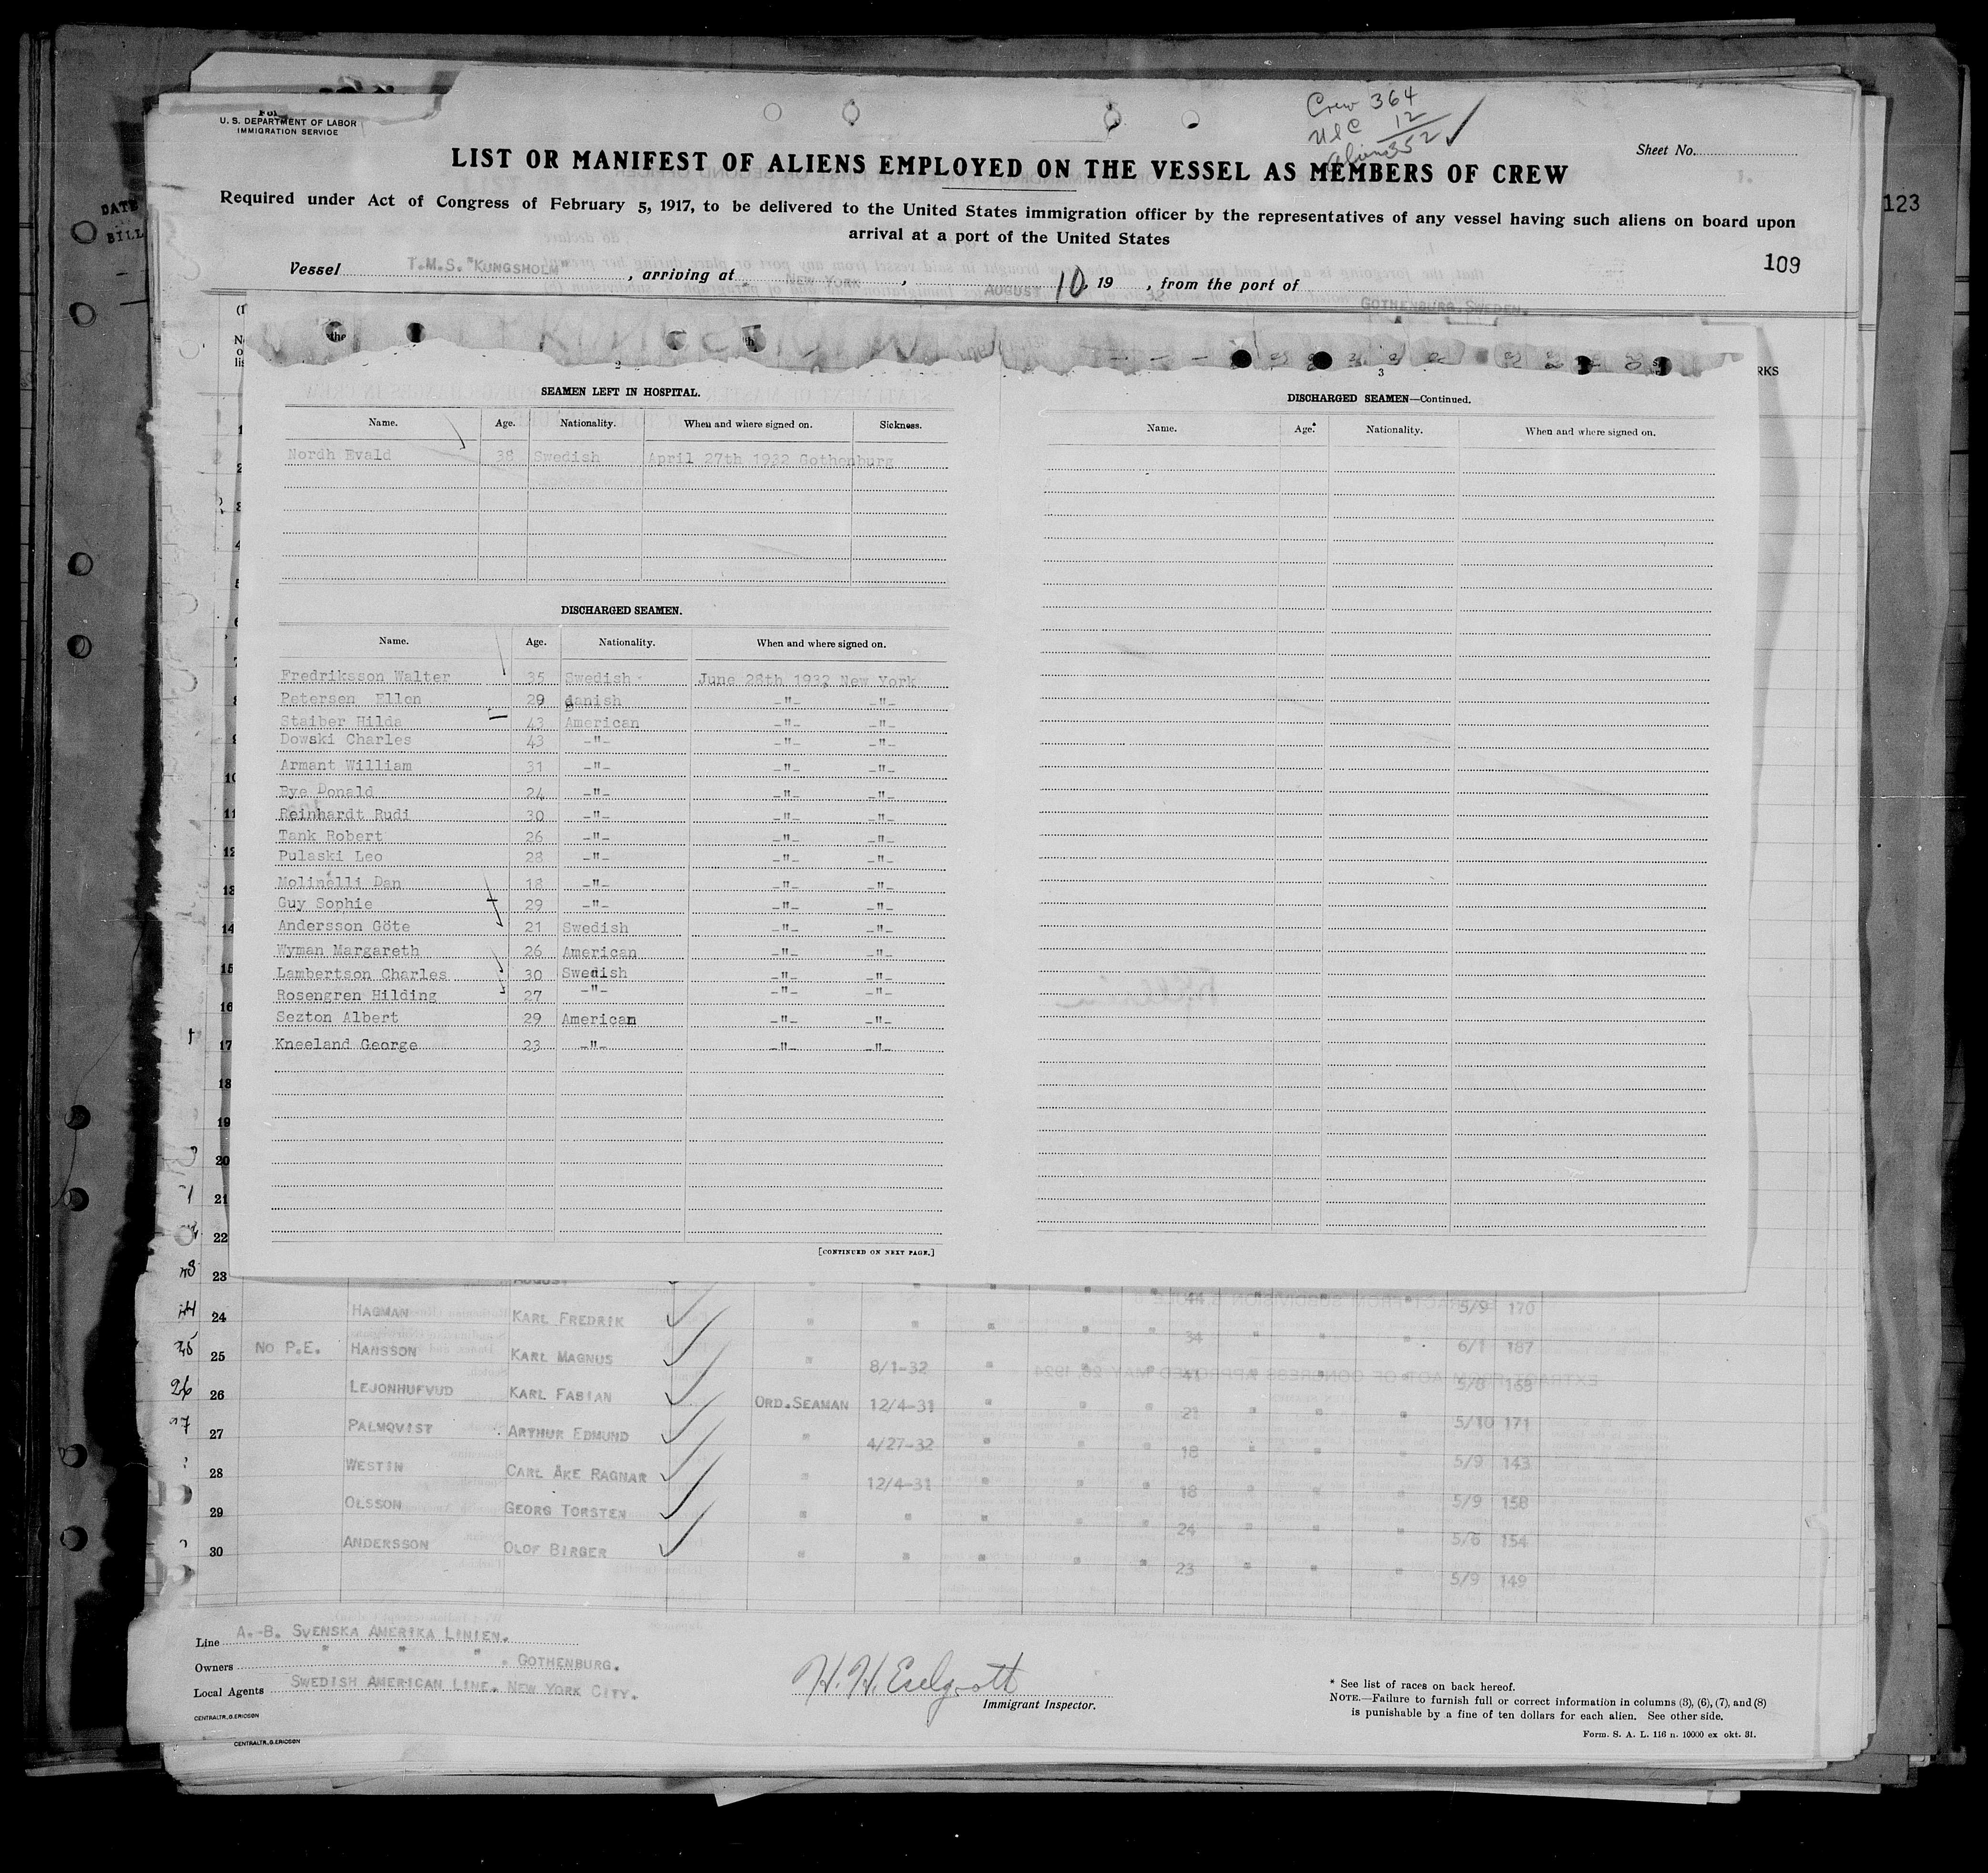 U. S. DEPARTMENT OF LABOR
IMMIGRATION SERVICE
Crew 364
12
Aliens 352
Sheet No.
LIST OR MANIFEST OF ALIENS EMPLOYED ON THE VESSEL AS MEMBERS OF CREW
Required under Act of Congress of February 5, 1917, to be delivered to the United States immigration officer by the representatives of any vessel having such aliens on board upon
arrival at a port of the United States
123
DATE
BILL
109
Vessel T.M.S. "KUNGSHOLM", arriving at NEW YORK, AUGUST 10, 1932, from the port of GOTHENBURG, SWEDEN.
RKS
2
SEAMEN LEFT IN HOSPITAL.
Name. Age. Nationality. When and where signed on. Sickness.
Nordh Evald 38 Swedish April 27th 1932 Gothenburg
DISCHARGED SEAMEN.
Name. Age. Nationality. When and where signed on.
Fredriksson Walter 35 Swedish June 28th 1932 New York
Petersen Ellon 29 danish -"- -"-
Staiber Hilda 43 American -"- -"-
Dowski Charles 43 -"- -"- -"-
Armant William 31 -"- -"- -"-
Bye Donald 24 -"- -"- -"-
Reinhardt Rudi 30 -"- -"- -"-
Tank Robert 26 -"- -"- -"-
Pulaski Leo 28 -"- -"- -"-
Molinelli Dan 18 -"- -"- -"-
Guy Sophie 29 -"- -"- -"-
Andersson Göte 21 Swedish -"- -"-
Wyman Margareth 26 American -"- -"-
Lambertson Charles 30 Swedish -"- -"-
Rosengren Hilding 27 -"- -"- -"-
Sezton Albert 29 American -"- -"-
Kneeland George 23 -"- -"- -"-
[CONTINUED ON NEXT PAGE.]
3
DISCHARGED SEAMEN—Continued.
Name. Age. Nationality. When and where signed on.
23 AUGUST
24 HAGMAN KARL FREDRIK " " " " " 44 " " " 5/9 170
25 NO P.E. HANSSON KARL MAGNUS " 8/1-32 " " " 34 " " " 6/1 187
26 LEJONHUFVUD KARL FABIAN ORD.SEAMAN 12/4-31 " " " 41 " " " 5/8 168
27 PALMQVIST ARTHUR EDMUND " 4/27-32 " " " 21 " " " 5/10 171
28 WESTIN CARL ÅKE RAGNAR " 12/4-31 " " " 18 " " " 5/9 143
29 OLSSON GEORG TORSTEN " " " " " 18 " " " 5/9 158
30 ANDERSSON OLOF BIRGER " " " " " 24 " " " 5/6 154
23 " " " 5/9 149
Line A.-B. SVENSKA AMERIKA LINIEN.
Owners " " " . GOTHENBURG.
Local Agents SWEDISH AMERICAN LINE. NEW YORK CITY.
CENTRALTR., G. ERICSON
CENTRALTR., G. ERICSON
H. H. Eselgroth
Immigrant Inspector.
* See list of races on back hereof.
NOTE.—Failure to furnish full or correct information in columns (3), (6), (7), and (8)
is punishable by a fine of ten dollars for each alien. See other side.
Form. S. A. L. 116 n. 10000 ex okt. 31.